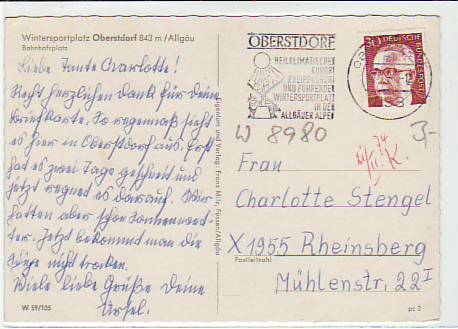 Wintersportplatz Oberstdorf 843 m /Allgäu
Bahnhofsplatz
Liebe Tante Charlotte!
Recht herzlichen Dank für Deine
Urlaubskarte. So regennaß sieht
es hier in Oberstdorf aus. Erst
hat es zwei Tage geschneit und
jetzt regnet es darauf. Wir
hatten aber schon Sonnenwet-
ter. Jetzt bekommt man die
Füße nicht trocken.
Viele liebe Grüße Deine
Ursel.
W 59/135
Eigentum und Verlag: Franz Milz, Füssen/Allgäu
OBERSTDORF
HEILKLIMATISCHER
KURORT
KNEIPPKURORT
UND FÜHRENDER
WINTERSPORTPLATZ
IN DEN
ALLGÄUER ALPEN
30
DEUTSCHE BUNDESPOST
W 8980
3,-
Frau
Charlotte Stengel
X 1955 Rheinsberg
Postleitzahl
Mühlenstr. 22 I
pc 3